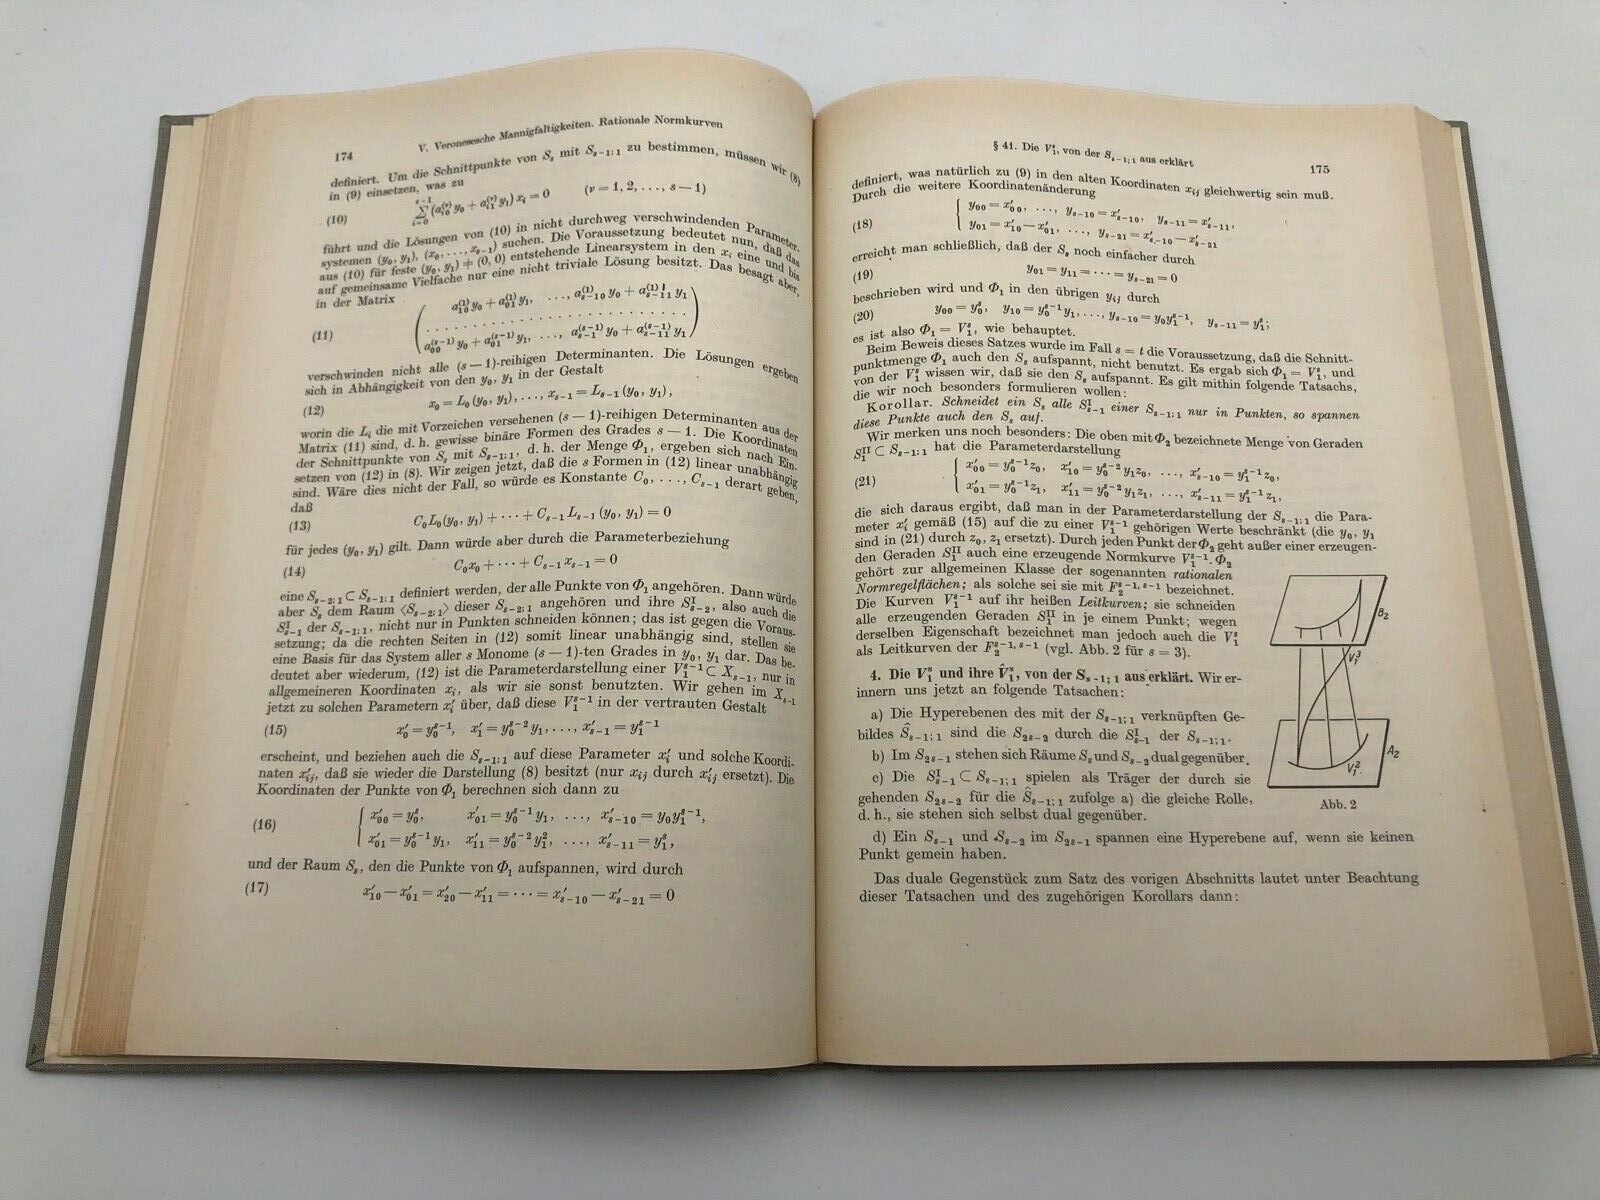 174 V. Veronesesche Mannigfaltigkeiten. Rationale Normkurven
definiert. Um die Schnittpunkte von S_s mit S_{s−1;1} zu bestimmen, müssen wir (8)
in (9) einsetzen, was zu
(10) \sum_{i=0}^{s−1} (a_{i0}^{(ν)} y_0 + a_{i1}^{(ν)} y_1) x_i = 0 (ν = 1, 2, ..., s − 1)
führt und die Lösungen von (10) in nicht durchweg verschwindenden Parameter-
systemen (y_0, y_1), (x_0, ..., x_{s−1}) suchen. Die Voraussetzung bedeutet nun, daß das
aus (10) für feste (y_0, y_1) ≠ (0, 0) entstehende Linearsystem in den x_i eine und bis
auf gemeinsame Vielfache nur eine nicht triviale Lösung besitzt. Das besagt aber,
in der Matrix
a_{10}^{(1)} y_0 + a_{01}^{(1)} y_1, ..., a_{s−10}^{(1)} y_0 + a_{s−11}^{(1)} y_1
(11) . . . . . . . . . . . . . . . . . . . . . . . . . .
a_{00}^{(s−1)} y_0 + a_{01}^{(s−1)} y_1, ..., a_{s−1}^{(s−1)} y_0 + a_{s−11}^{(s−1)} y_1
verschwinden nicht alle (s − 1)-reihigen Determinanten. Die Lösungen ergeben
sich in Abhängigkeit von den y_0, y_1 in der Gestalt
(12) x_0 = L_0(y_0, y_1), ..., x_{s−1} = L_{s−1}(y_0, y_1),
worin die L_i die mit Vorzeichen versehenen (s − 1)-reihigen Determinanten aus der
Matrix (11) sind, d. h. gewisse binäre Formen des Grades s − 1. Die Koordinaten
der Schnittpunkte von S_s mit S_{s−1;1}, d. h. der Menge Φ_1, ergeben sich nach Ein-
setzen von (12) in (8). Wir zeigen jetzt, daß die s Formen in (12) linear unabhängig
sind. Wäre dies nicht der Fall, so würde es Konstante C_0, ..., C_{s−1} derart geben,
daß
(13) C_0 L_0(y_0, y_1) + ··· + C_{s−1} L_{s−1}(y_0, y_1) = 0
für jedes (y_0, y_1) gilt. Dann würde aber durch die Parameterbeziehung
(14) C_0 x_0 + ··· + C_{s−1} x_{s−1} = 0
eine S_{s−2;1} ⊂ S_{s−1;1} definiert werden, der alle Punkte von Φ_1 angehören. Dann würde
aber S_s dem Raum ⟨S_{s−2;1}⟩ dieser S_{s−2;1} angehören und ihre S_{s−2}^I, also auch die
S_{s−1}^I der S_{s−1;1}, nicht nur in Punkten schneiden können; das ist gegen die Voraus-
setzung; da die rechten Seiten in (12) somit linear unabhängig sind, stellen sie
eine Basis für das System aller s Monome (s − 1)-ten Grades in y_0, y_1 dar. Das be-
deutet aber wiederum, (12) ist die Parameterdarstellung einer V_1^{s−1} ⊂ X_{s−1}, nur in
allgemeineren Koordinaten x_i, als wir sie sonst benutzten. Wir gehen im X_{s−1}
jetzt zu solchen Parametern x_i' über, daß diese V_1^{s−1} in der vertrauten Gestalt
(15) x_0' = y_0^{s−1}, x_1' = y_0^{s−2} y_1, ..., x_{s−1}' = y_1^{s−1}
erscheint, und beziehen auch die S_{s−1;1} auf diese Parameter x_i' und solche Koordi-
naten x_{ij}', daß sie wieder die Darstellung (8) besitzt (nur x_{ij} durch x_{ij}' ersetzt). Die
Koordinaten der Punkte von Φ_1 berechnen sich dann zu
(16) { x_{00}' = y_0^s, x_{01}' = y_0^{s−1} y_1, ..., x_{s−10}' = y_0 y_1^{s−1},
x_{01}' = y_0^{s−1} y_1, x_{11}' = y_0^{s−2} y_1^2, ..., x_{s−11}' = y_1^s,
und der Raum S_s, den die Punkte von Φ_1 aufspannen, wird durch
(17) x_{10}' − x_{01}' = x_{20}' − x_{11}' = ··· = x_{s−10}' − x_{s−21}' = 0
§ 41. Die V_1^s, von der S_{s−1;1} aus erklärt 175
definiert, was natürlich zu (9) in den alten Koordinaten x_{ij} gleichwertig sein muß.
Durch die weitere Koordinatenänderung
(18) { y_{00} = x_{00}', ..., y_{s−10} = x_{s−10}', y_{s−11} = x_{s−11}',
y_{01} = x_{10}' − x_{01}', ..., y_{s−21} = x_{s−10}' − x_{s−21}'
erreicht man schließlich, daß der S_s noch einfacher durch
(19) y_{01} = y_{11} = ··· = y_{s−21} = 0
beschrieben wird und Φ_1 in den übrigen y_{ij} durch
(20) y_{00} = y_0^s, y_{10} = y_0^{s−1} y_1, ..., y_{s−10} = y_0 y_1^{s−1}, y_{s−11} = y_1^s;
es ist also Φ_1 = V_1^s, wie behauptet.
Beim Beweis dieses Satzes wurde im Fall s = t die Voraussetzung, daß die Schnitt-
punktmenge Φ_1 auch den S_s aufspannt, nicht benutzt. Es ergab sich Φ_1 = V_1^s, und
von der V_1^s wissen wir, daß sie den S_s aufspannt. Es gilt mithin folgende Tatsachs,
die wir noch besonders formulieren wollen:
Korollar. Schneidet ein S_s alle S_{s−1}^I einer S_{s−1;1} nur in Punkten, so spannen
diese Punkte auch den S_s auf.
Wir merken uns noch besonders: Die oben mit Φ_2 bezeichnete Menge von Geraden
S_1^{II} ⊂ S_{s−1;1} hat die Parameterdarstellung
(21) { x_{00}' = y_0^{s−1} z_0, x_{10}' = y_0^{s−2} y_1 z_0, ..., x_{s−10}' = y_1^{s−1} z_0,
x_{01}' = y_0^{s−1} z_1, x_{11}' = y_0^{s−2} y_1 z_1, ..., x_{s−11}' = y_1^{s−1} z_1,
die sich daraus ergibt, daß man in der Parameterdarstellung der S_{s−1;1} die Para-
meter x_i' gemäß (15) auf die zu einer V_1^{s−1} gehörigen Werte beschränkt (die y_0, y_1
sind in (21) durch z_0, z_1 ersetzt). Durch jeden Punkt der Φ_2 geht außer einer erzeugen-
den Geraden S_1^{II} auch eine erzeugende Normkurve V_1^{s−1}. Φ_2
gehört zur allgemeinen Klasse der sogenannten rationalen
Normregelflächen; als solche sei sie mit F_2^{s−1, s−1} bezeichnet.
Die Kurven V_1^{s−1} auf ihr heißen Leitkurven; sie schneiden
alle erzeugenden Geraden S_1^{II} in je einem Punkt; wegen
derselben Eigenschaft bezeichnet man jedoch auch die V_1^s
als Leitkurven der F_2^{s−1, s−1} (vgl. Abb. 2 für s = 3).
4. Die V_1^s und ihre V̂_1^s, von der S_{s−1;1} aus erklärt. Wir er-
innern uns jetzt an folgende Tatsachen:
a) Die Hyperebenen des mit der S_{s−1;1} verknüpften Ge-
bildes Ŝ_{s−1;1} sind die S_{2s−2} durch die S_{s−1}^I der S_{s−1;1}.
b) Im S_{2s−1} stehen sich Räume S_s und S_{s−2} dual gegenüber.
c) Die S_{s−1}^I ⊂ S_{s−1;1} spielen als Träger der durch sie
gehenden S_{2s−2} für die Ŝ_{s−1;1} zufolge a) die gleiche Rolle,
d. h., sie stehen sich selbst dual gegenüber.
d) Ein S_{s−1} und S_{s−2} im S_{2s−1} spannen eine Hyperebene auf, wenn sie keinen
Punkt gemein haben.
Das duale Gegenstück zum Satz des vorigen Abschnitts lautet unter Beachtung
dieser Tatsachen und des zugehörigen Korollars dann:
B_2
V_1^3
A_2
V_1^2
Abb. 2